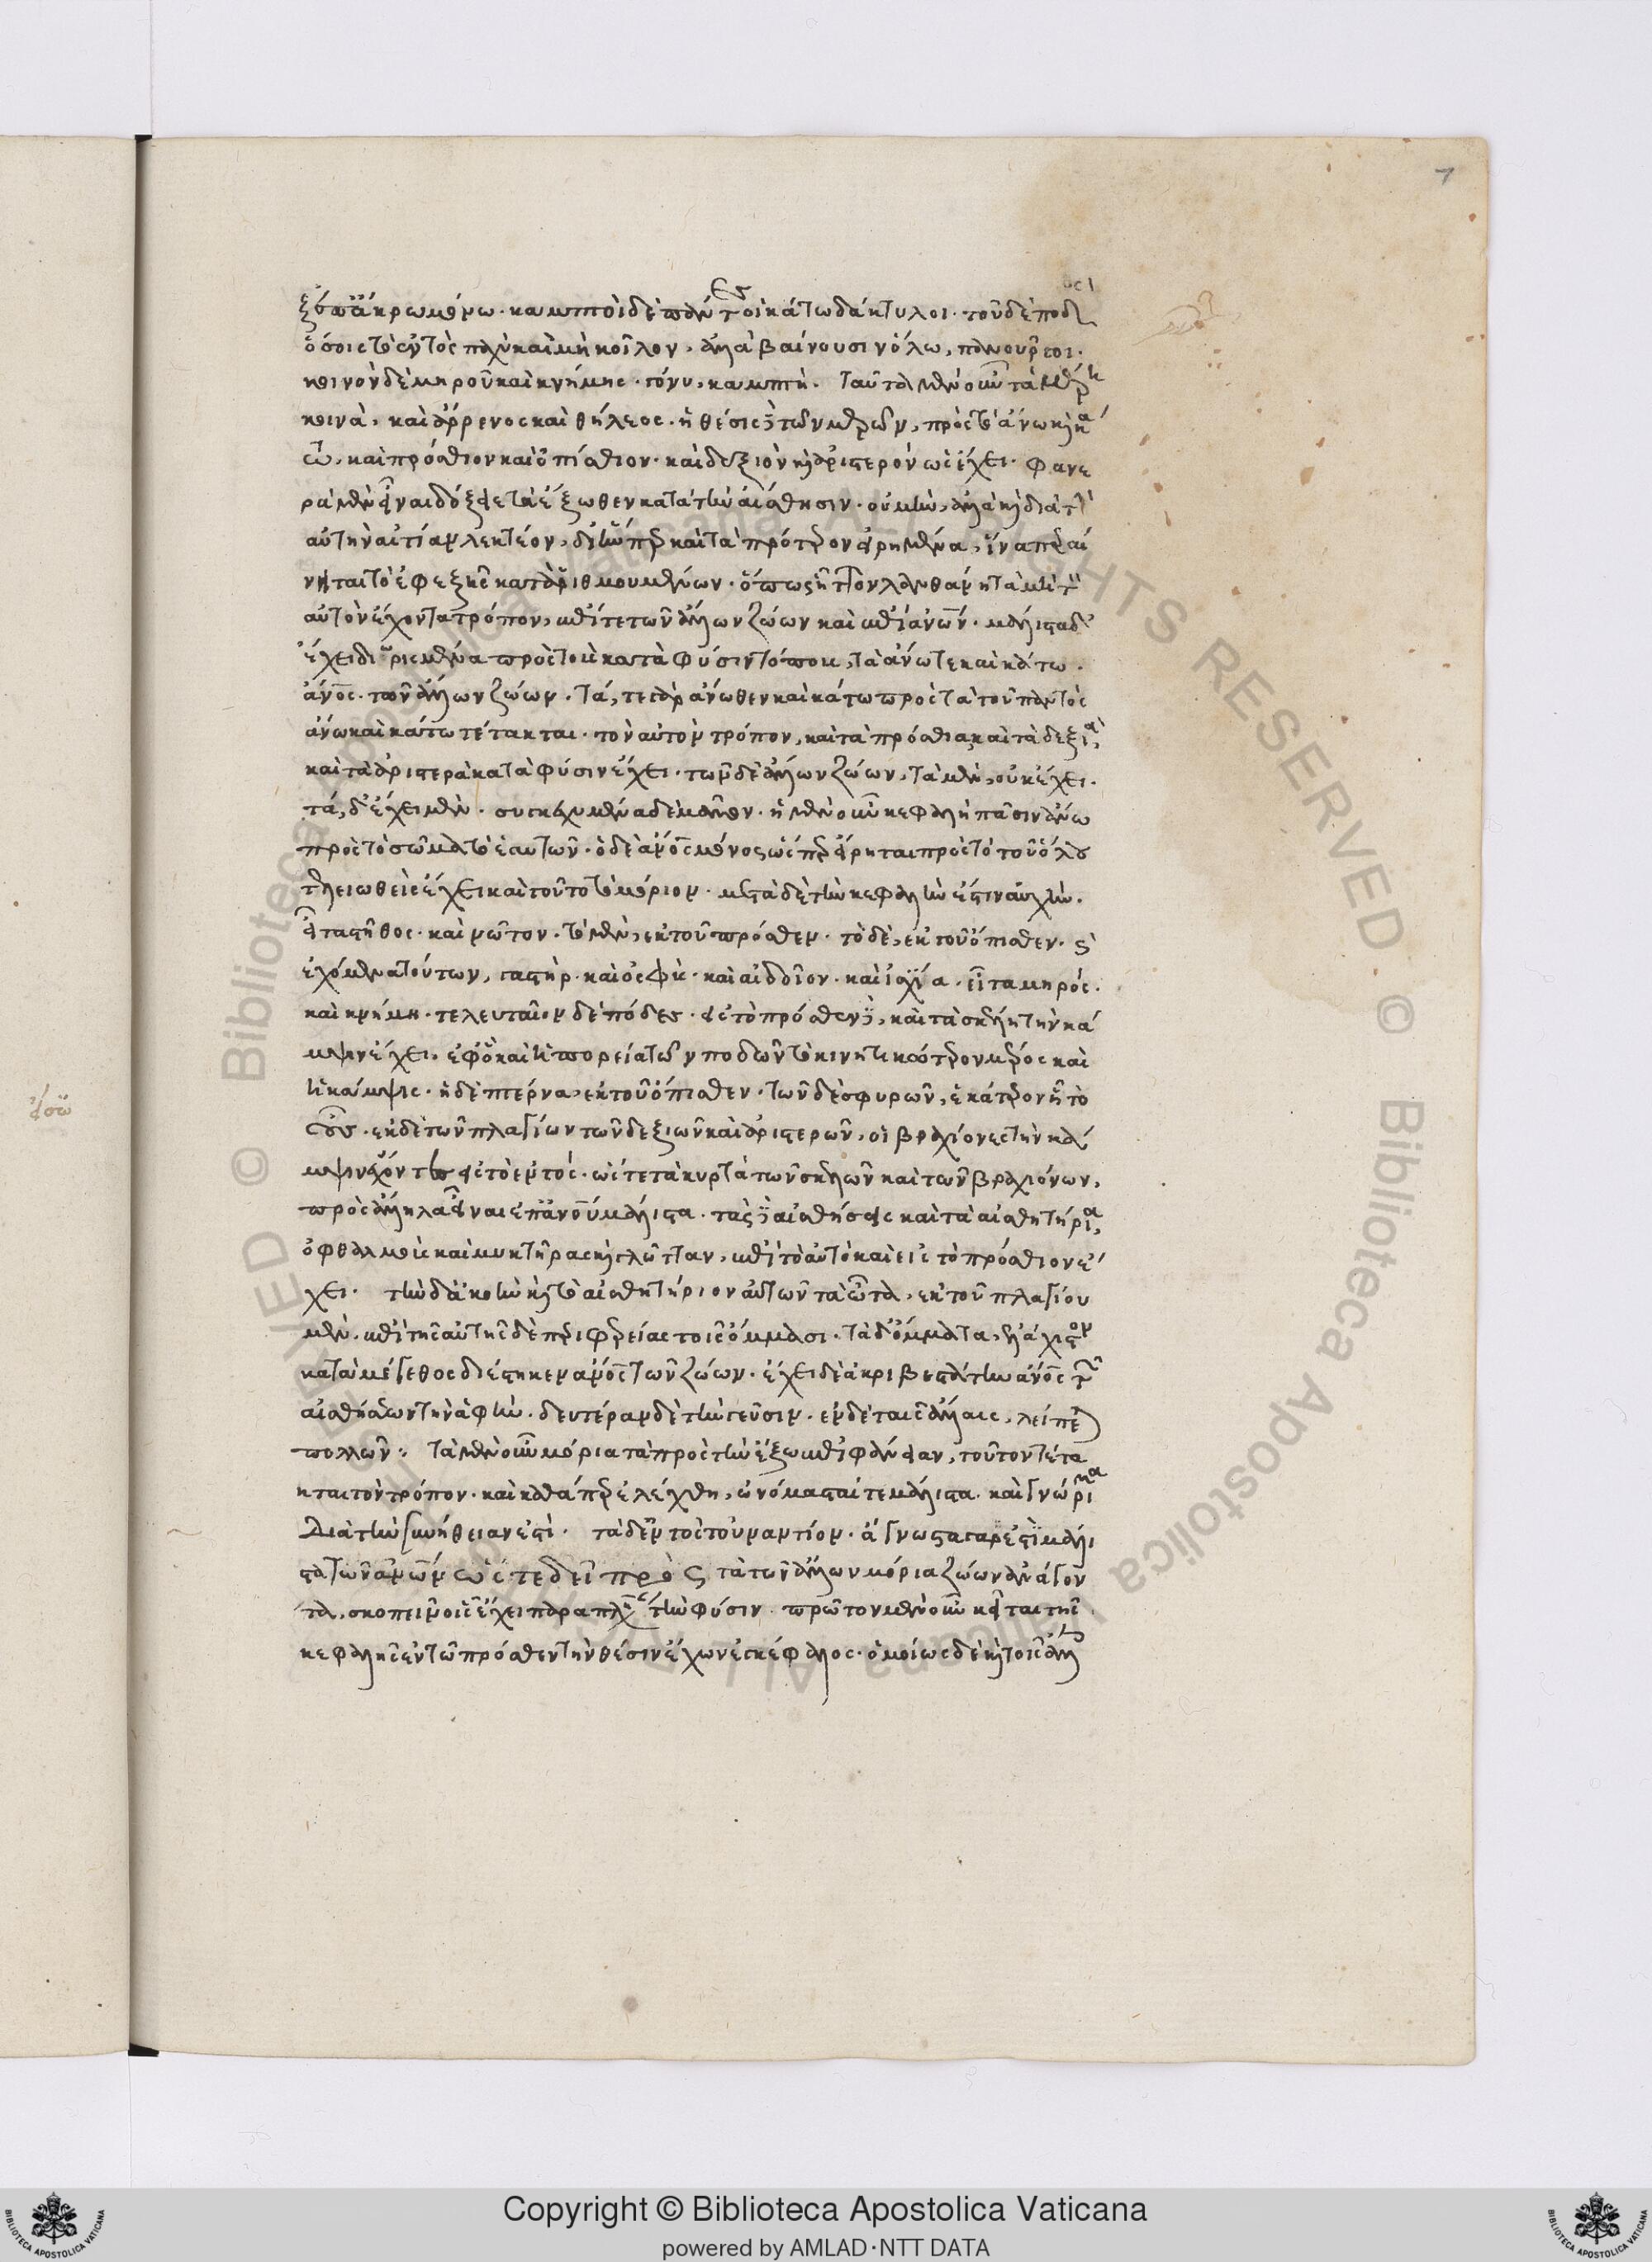 ξ ἐπ' ἄκρω μόνω· καμπτοὶ δὲ πάντες οἱ κάτω δάκτυλοι· τοῦ δὲ ποδὸς
ὅσοις τὸ ἐντὸς παχὺ καὶ μὴ κοῖλον, ἀλλὰ βαίνουσιν ὅλω, πανοῦργοι·
κοινὸν δὲ μηροῦ καὶ κνήμης· γόνυ, καμπή. ταῦτα μὲν οὖν τὰ μέρη
κοινὰ, καὶ ἄρρενος καὶ θήλεος· ἡ θέσις δὲ τῶν μερῶν, πρὸς τὸ ἄνω καὶ κά
τω, καὶ πρόσθιον καὶ ὀπίσθιον· καὶ δεξιὸν καὶ ἀριστερὸν ὡς ἔχει· φανε
ρὰ μὲν εἶναι δόξειε τὰ ἔξωθεν κατὰ τὴν αἴσθησιν· οὐ μὴν, ἀλλὰ καὶ διὰ τὴν
αὐτὴν αἰτίαν λεκτέον, δι' ἥνπερ καὶ τὰ πρότερον εἰρημένα, ἵνα περαί
νηται τὸ ἐφεξῆς καταριθμουμένων· ὅπως ἧττον λανθάνη τὰ μὴ τὸν
αὐτὸν ἔχοντα τρόπον, ἐπί τε τῶν ἄλλων ζώων καὶ ἐπὶ ἀνθρώπων· μάλιστα δ'
ἔχει διωρισμένα πρὸς τοὺς κατὰ φύσιν τόπους, τὰ ἄνω τε καὶ κάτω·
ἄνθρωπος· τῶν ἄλλων ζώων· τά, τε γὰρ ἄνωθεν καὶ κάτω πρὸς τὰ τοῦ παντὸς
ἄνω καὶ κάτω τέτακται· τὸν αὐτὸν τρόπον, καὶ τὰ πρόσθια καὶ τὰ δεξιὰ,
καὶ τὰ ἀριστερὰ κατὰ φύσιν ἔχει· τῶν δὲ ἄλλων ζώων, τὰ μὲν, οὐκ ἔχει·
τά, δ' ἔχει μὲν· συγκεχυμένα δὲ μᾶλλον· ἡ μὲν οὖν κεφαλὴ πᾶσιν ἄνω
πρὸς τὸ σῶμα τὸ ἑαυτῶν· ὁ δὲ ἄνθρωπος μόνος ὥσπερ εἴρηται πρὸς τὸ τοῦ ὅλου
τελειωθεὶς ἔχει καὶ τοῦτο τὸ μόριον· μετὰ δὲ τὴν κεφαλὴν ἐστὶν αὐχὴν·
εἶτα στῆθος· καὶ νῶτον· τὸ μὲν, ἐκ τοῦ πρόσθεν· τὸ δὲ, ἐκ τοῦ ὄπισθεν· καὶ
ἐχόμενα τούτων, γαστὴρ· καὶ ὀσφὺς· καὶ αἰδοῖον· καὶ ἰσχία· εἶτα μηρός·
καὶ κνήμη· τελευταῖον δὲ πόδες· εἰς τὸ πρόσθεν δὲ, καὶ τὰ σκέλη τὴν κά
μψιν ἔχει, ἐφ' ὃ καὶ ἡ πορεία τῶν ποδῶν τὸ κινητικώτερον μέρος καὶ
ἡ κάμψις· ἡ δὲ πτέρνα, ἐκ τοῦ ὄπισθεν· τῶν δὲ σφυρῶν, ἑκάτερον ἧ τὸ
οὖς· ἐκ δὲ τῶν πλαγίων τῶν δεξιῶν καὶ ἀριστερῶν, οἱ βραχίονες τὴν κά
μψιν ἔχοντες εἰς τὸ ἐντός· ὥστε τὰ κυρτὰ τῶν σκελῶν καὶ τῶν βραχιόνων,
πρὸς ἄλληλα εἶναι ἐπ' ἀνθρώπου μάλιστα· τὰς δὲ αἰσθήσεις καὶ τὰ αἰσθητήρια,
ὀφθαλμοὺς καὶ μυκτῆρας καὶ γλῶτταν, ἐπὶ τὸ αὐτὸ καὶ εἰς τὸ πρόσθιον ἔ
χει· τὴν δ' ἀκοὴν καὶ τὸ αἰσθητήριον αὐτῶν τὰ ὦτα, ἐκ τοῦ πλαγίου
μὲν· ἐπὶ τῆς αὐτῆς δὲ περιφερείας τοῖς ὄμμασι· τὰ δ' ὄμματα, ἐλάχιστον
κατὰ μέγεθος διέστηκεν ἀνθρώπος τῶν ζώων· ἔχει δὲ ἀκριβεστάτην ἄνθρωπος τῶν
αἰσθήσεων τὴν ἁφὴν· δευτέραν δὲ τὴν γεῦσιν· ἐν δὲ ταῖς ἄλλαις, λείπεται
πολλῶν· τὰ μὲν οὖν μόρια τὰ πρὸς τὴν ἔξω ἐπιφάνειαν, τοῦτον τέτα
κται τὸν τρόπον· καὶ καθάπερ ἐλέχθη, ὠνόμασταί τε μάλιστα· καὶ γνώριμα
διὰ τὴν συνήθειαν ἐστὶ· τὰ δ' ἐντὸς τοὐναντίον· ἄγνωστα γάρ ἐστι μάλι
στα τῶν ἀνθρώπων ὥστε δεῖ πρὸς τὰ τῶν ἄλλων μόρια ζώων ἀνάγον
τα, σκοπεῖν οἷς ἔχει παραπλησίαν τὴν φύσιν· πρῶτον μὲν οὖν κεῖται τῆς
κεφαλῆς ἐν τῶ πρόσθεν τὴν θέσιν ἔχων ἐγκέφαλος· ὁμοίως δὲ καὶ τοῖς ἄλλοις
7
ἔσω
Copyright © Biblioteca Apostolica Vaticana
powered by AMLAD·NTT DATA
© Biblioteca Apostolica Vaticana ALL RIGHTS RESERVED © Biblioteca Apostolica Vaticana ALL RIGHTS RESERVED
BIBLIOTECA APOSTOLICA VATICANA
BIBLIOTECA APOSTOLICA VATICANA